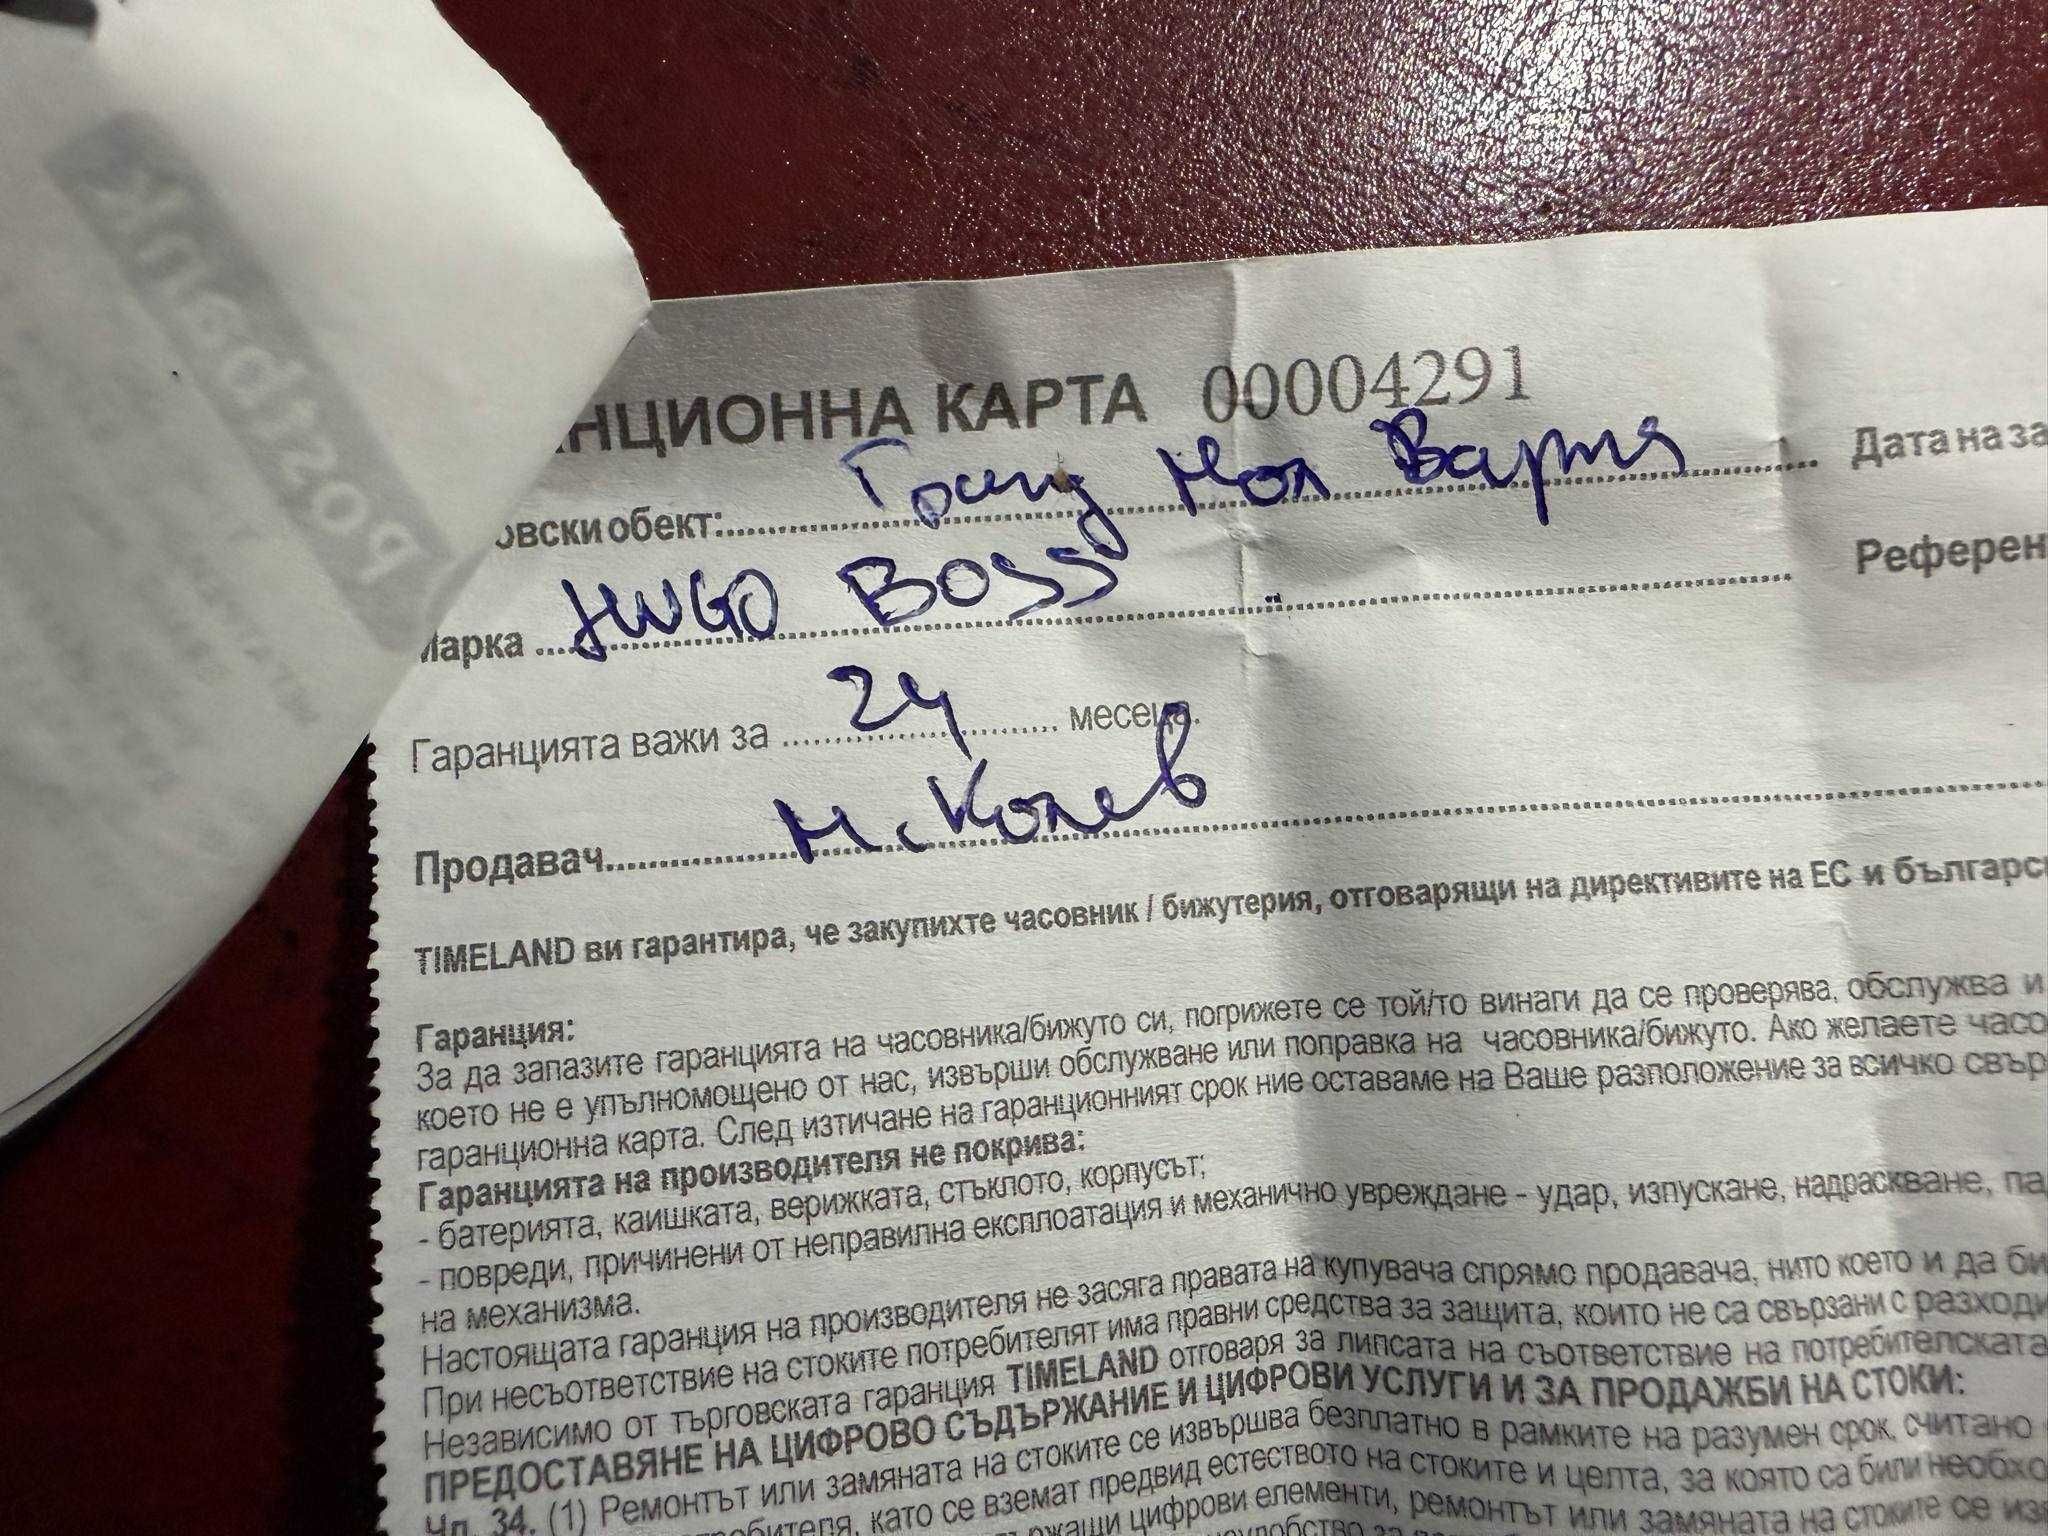 postbank
НЦИОННА КАРТА 00004291
овски обект: Гранд Мол Варна
Дата на за
Марка HUGO BOSS
Референ
Гаранцията важи за 24 месеца.
Продавач М. Колев
TIMELAND ви гарантира, че закупихте часовник / бижутерия, отговарящи на директивите на ЕС и българс
Гаранция:
За да запазите гаранцията на часовника/бижуто си, погрижете се той/то винаги да се проверява, обслужва и
което не е упълномощено от нас, извърши обслужване или поправка на часовника/бижуто. Ако желаете часо
гаранционна карта. След изтичане на гаранционният срок ние оставаме на Ваше разположение за всичко свър
Гаранцията на производителя не покрива:
- батерията, каишката, верижката, стъклото, корпусът;
- повреди, причинени от неправилна експлоатация и механично увреждане - удар, изпускане, надраскване, па
на механизма.
Настоящата гаранция на производителя не засяга правата на купувача спрямо продавача, нито което и да би
При несъответствие на стоките потребителят има правни средства за защита, които не са свързани с разходи
Независимо от търговската гаранция TIMELAND отговаря за липсата на съответствие на потребителската
ПРЕДОСТАВЯНЕ НА ЦИФРОВО СЪДЪРЖАНИЕ И ЦИФРОВИ УСЛУГИ И ЗА ПРОДАЖБИ НА СТОКИ:
Чл. 34. (1) Ремонтът или замяната на стоките се извършва безплатно в рамките на разумен срок, считано
требителя, като се вземат предвид естеството на стоките и целта, за която са били необхо
ржащи цифрови елементи, ремонтът или замяната на стоките се из